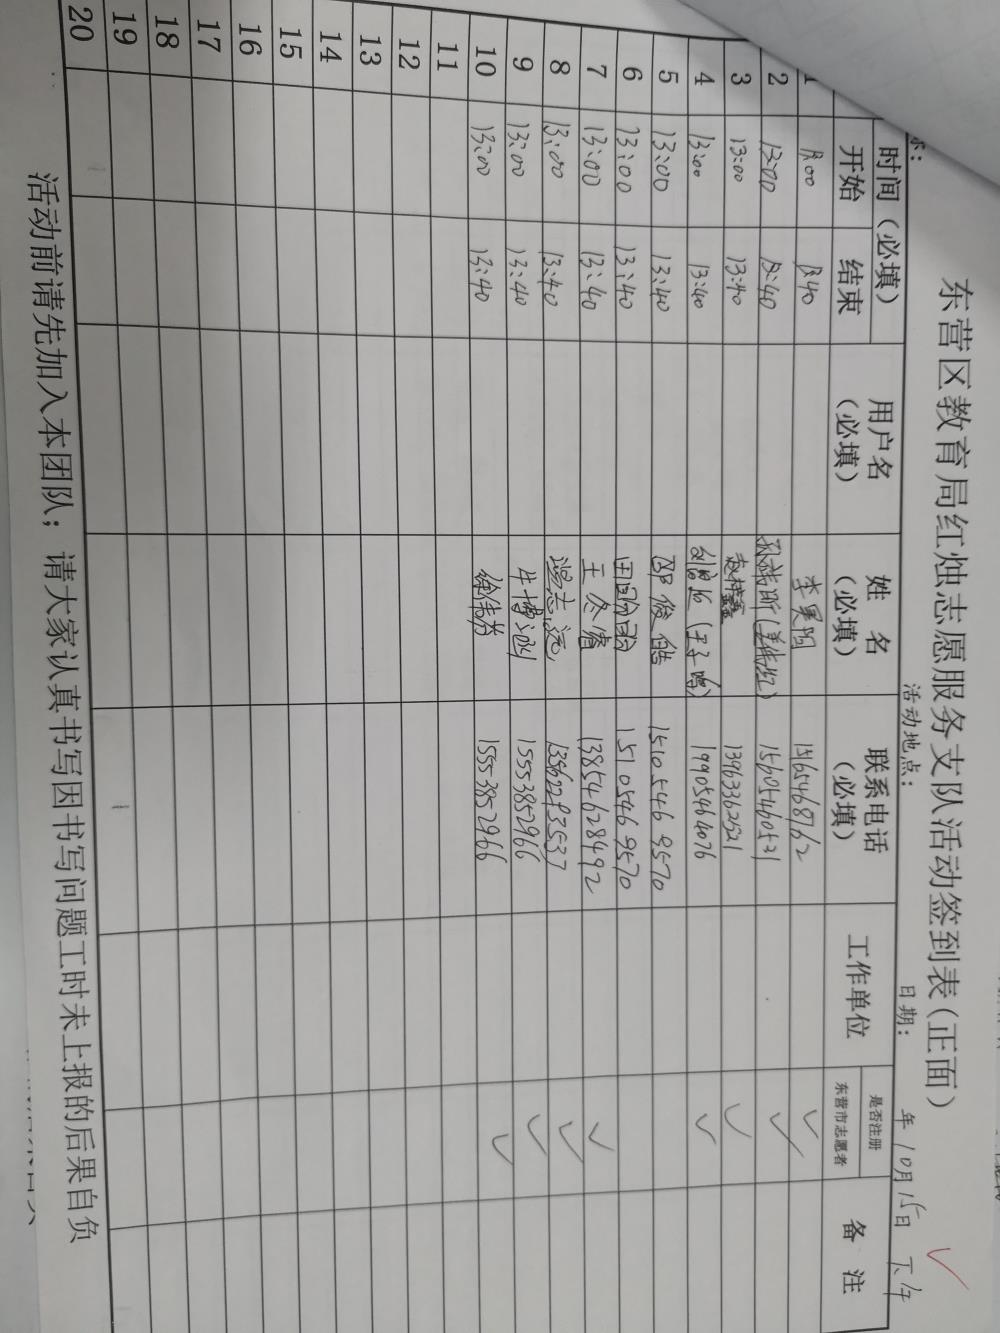 东营区教育局红烛志愿服务支队活动签到表(正面)
活动地点: 日期: 年 10月15日 下午
时间(必填) 用户名(必填) 姓名(必填) 联系电话(必填) 工作单位 是否注册东营市志愿者 备注
开始 结束
1 13:00 13:40 15165468762
2 13:00 13:40 15605460531
3 13:00 13:40 13963362521
4 13:00 13:40 19905464076
5 13:00 13:40 邵俊皓 15105469570
6 13:00 13:40 15105469570
7 13:00 13:40 王冬睿 13854628492
8 13:00 13:40 13562293537
9 13:00 13:40 牛博涵 15553852966
10 13:00 13:40 徐伟芳 15553852966
11
12
13
14
15
16
17
18
19
20
活动前请先加入本团队;请大家认真书写因书写问题工时未上报的后果自负